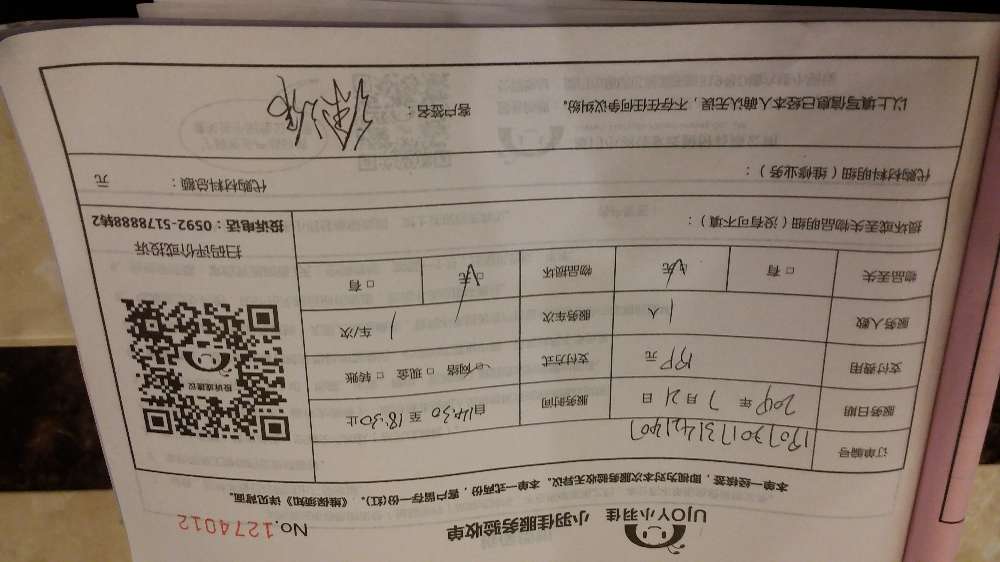 UJOY小羽佳 小羽佳服务验收单 No.1274012
本单一经核签，即视为对本次服务验收无异议。本单一式两份，客户留存一份(红)。《维保须知》详见背面。
订单编号
服务日期 年 7 月 21 日 服务时间 自14:30 至 18:30止
支付费用 元 支付方式 □ 网络 □ 现金 □ 转账
服务人数 1 人 服务车次 1 车/次
物品丢失 □ 有 □ 无 物品损坏 □ 无 □ 有
投诉或建议
扫码评价或投诉
投诉电话：0592-5178888转2
损坏或丢失物品明细（没有可不填）：
代购材料明细（维修业务）： 代购材料总额： 元
以上填写信息已经本人确认无误，不存在任何争议纠纷。 客户签名：